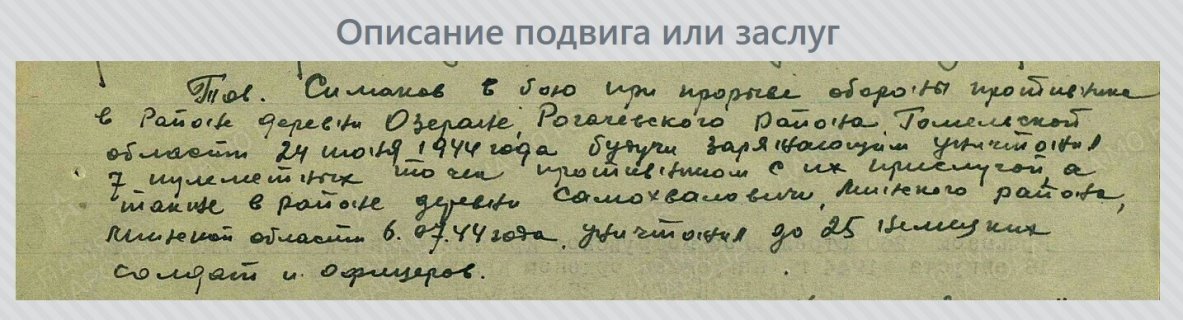 Описание подвига или заслуг
Тов. Симаков в бою при прорыве обороны противника
в районе деревни Озеране, Рогачевского района, Гомельской
области 24 июня 1944 года будучи заряжающим уничтожил
7 пулеметных точек противником с их прислугой, а
также в районе деревни Самохваловичи, Минского района,
Минской области 6.07.44 года уничтожил до 25 немецких
солдат и офицеров.